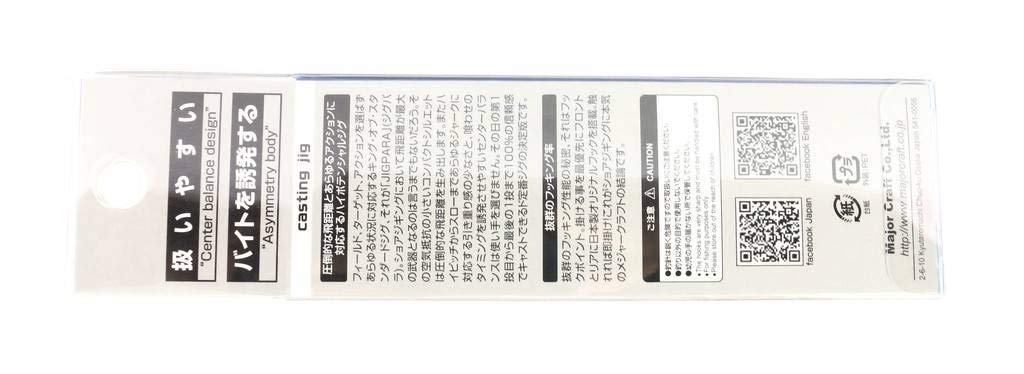 扱いやすい
"Center balance design"
バイトを誘発する
"Asymmetry body"
casting jig
圧倒的な飛距離とあらゆるアクションに
対応するハイポテンシャルジグ
フィールド、ターゲット、アクションを選ばず
あらゆる状況に対応するキング・オブ・スタ
ンダードジグ、それが「JIGPARA」(ジグパ
ラ)。ショアジギングにおいて飛距離が最大
の武器となるのは言うまでもないだろう。そ
の空気抵抗の小さいコンパクトシルエット
は圧倒的な飛距離を生み出します。またハ
イピッチからスローまであらゆるジャークに
対応する引き重り感の少なさと、喰わせの
タイミングを誘発させやすいセンターバラ
ンスは使い手を選びません。その日の第1
投目から最後の1投まで100%の信頼感
でキャストできるド定番ジグの決定版です。
抜群のフッキング率
抜群のフッキング性能の秘密、それはフッ
クポイント。掛ける事を最優先にフロント
とリアに日本製オリジナルフックを搭載。触
れれば即掛け!これがショアジギング!に本気
のメジャークラフトの結論です。
ご注意 ⚠ CAUTION
●釣針は鋭く危険ですので取扱いにご注意ください。
●釣り以外の目的で使用しないでください。
●幼児の手の届かない所で保管してください。
●The hooks are very sharp and must be handled with care.
●For fishing purposes only.
●Please store out of the reach of children.
facebook Japan
facebook English
紙
台紙
プラ
外装:PET
Major Craft Co.,Ltd.
http://www.majorcraft.co.jp
2-6-10 Kyutaromachi Chuo-ku Osaka Japan 541-0056